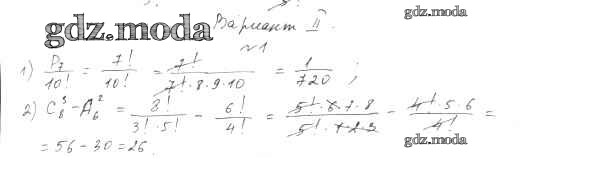 gdz.moda
Вариант II.
gdz.moda
№1
1) P₇/10! = 7!/10! = 7!/(7!·8·9·10) = 1/720 ;
2) C₈³ - A₆² = 8!/(3!·5!) - 6!/4! = (5!·6·7·8)/(5!·1·2·3) - (4!·5·6)/4! =
gdz.moda
= 56 - 30 = 26.